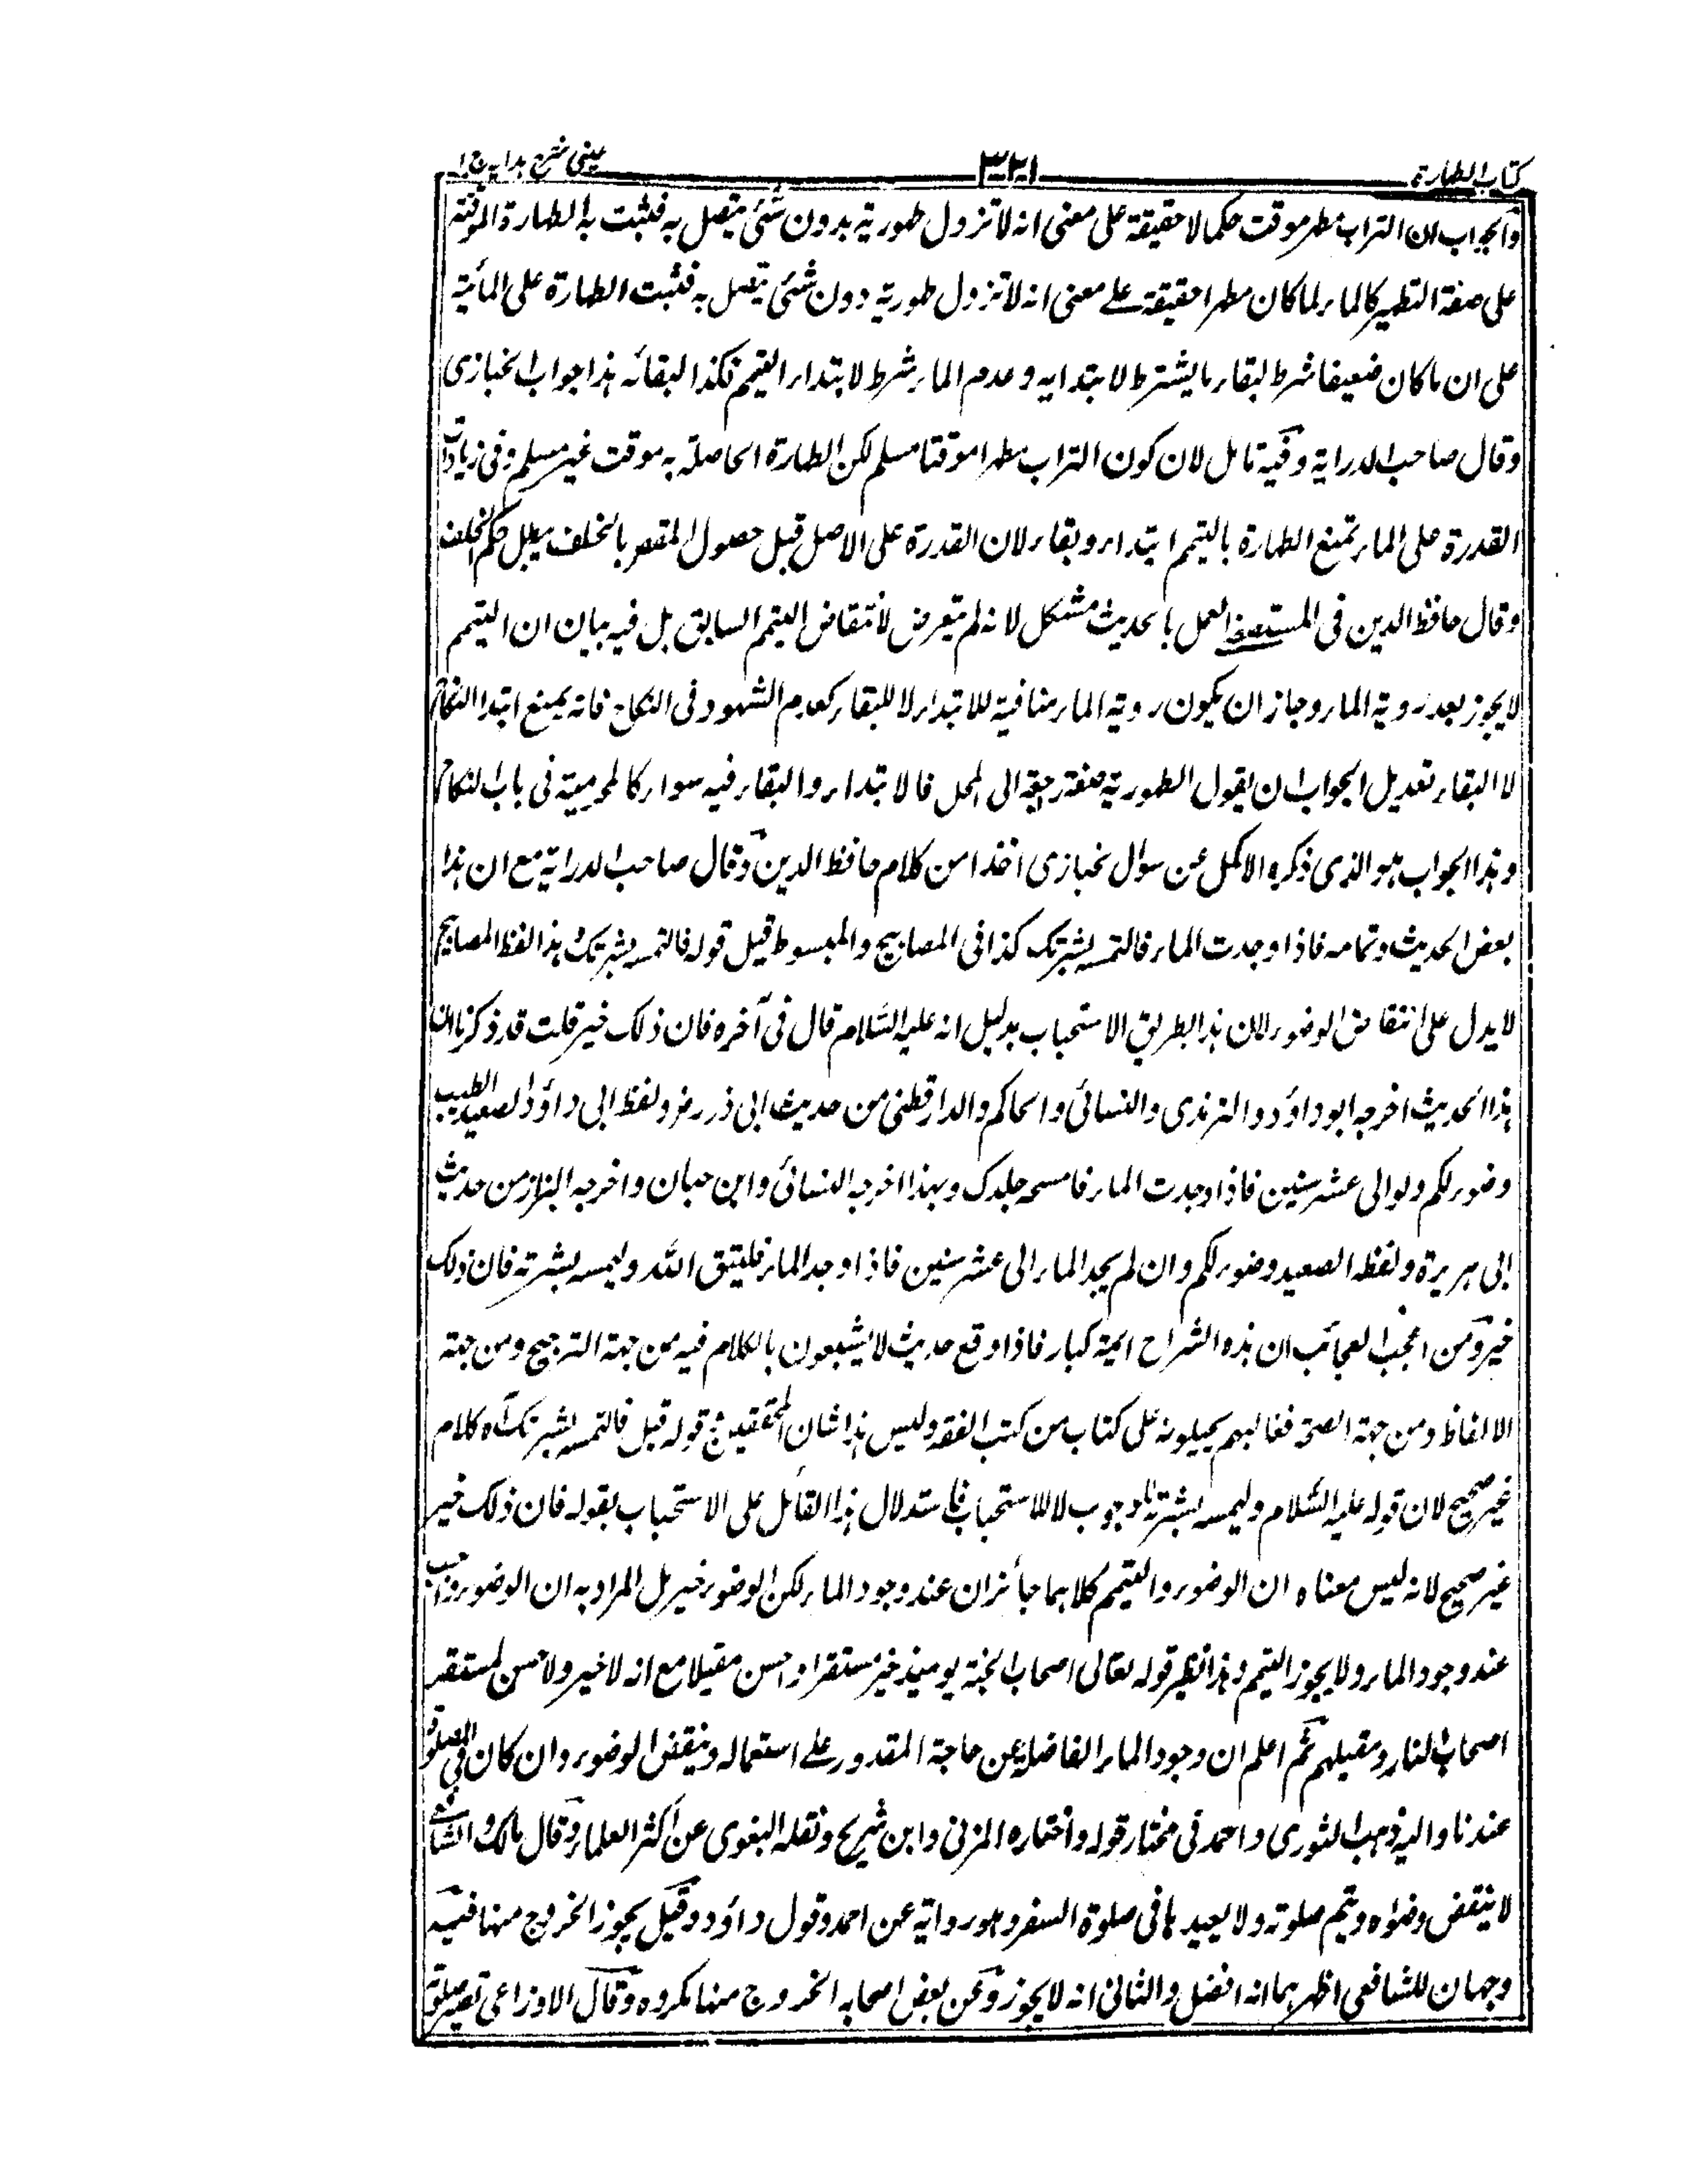 كتاب الطهارة ٣٢١ عينى شرح هدايه ج ١
والجواب ان التراب مطهر موقت حكما لا حقيقة على معنى انه لا تزول طهوريته بدون شئ يتصل به فيثبت به الطهارة الموقتة
على صفة التطهير كالماء لما كان مطهرا حقيقة على معنى انه لا تزول طهوريته دون شئ يتصل به فثبت الطهارة على المائية
على ان ما كان ضعيفا شرط لبقاء ما يشترط لابتدايه وعدم الماء شرط لابتداء التيمم فكذا لبقائه هذا جواب الخبازى
وقال صاحب الدراية وفيه تامل لان كون التراب مطهرا موقتا مسلم لكن الطهارة الحاصلة به موقت غير مسلم وفى زيادات
القدرة على الماء تمنع الطهارة بالتيمم ابتداء وبقاء لان القدرة على الاصل قبل حصول المقصود بالخلف يبطل حكم الخلف
وقال حافظ الدين فى المستصفى العمل بالحديث مشكل لانه لم يتعرض لانتقاض التيمم السابق بل فيه بيان ان التيمم
لا يجوز بعد روية الماء وجاز ان يكون روية الماء منافية للابتداء لا للبقاء كعدم الشهود فى النكاح فانه يمنع ابتدا النكاح
لا البقاء تعديل الجواب ان يقول الطهورية صفة راجعة الى المحل فالابتداء والبقاء فيه سواء كالمحرمية فى باب النكاح
وهذا الجواب هو الذى ذكره الاكمل عن سوال خبازى اخذا من كلام حافظ الدين وقال صاحب الدراية مع ان هذا
بعض الحديث وتمامه فاذا وجدت الماء فالتمسه بشرتك كذا فى المصابيح والمبسوط قيل قوله فالتمسه بشرتك هذا لفظ المصابيح
لا يدل على انتقاض الوضوء لان هذا بطريق الاستحباب بدليل انه عليه السلام قال فى آخره فان ذلك خير قلت قد ذكرنا ان
هذا الحديث اخرجه ابو داؤد والترمذى والنسائى والحاكم والدارقطنى من حديث ابى ذر رض ولفظ ابى داؤد الصعيد الطيب
وضوء لكم ولو الى عشر سنين فاذا وجدت الماء فامسحه جلدك وبهذا اخرجه النسائى وابن حبان واخرجه البزاز من حديث
ابى هريرة ولفظه الصعيد وضوء لكم وان لم يجد الماء الى عشر سنين فاذا وجد الماء فليتق الله وليمسه بشرته فان ذلك
خير ومن اعجب العجائب ان هذه الشراح ايمة كبار فاذا وقع حديث لا يشبعون بالكلام فيه من جهة الترجيح ومن جهة
الالفاظ ومن جهة الصحة فغالبهم يحيلونه على كتاب من كتب الفقه وليس هذا شان المحققين ثم قوله قبل فالتمسه بشرتك آه كلام
غير صحيح لان قوله عليه السلام وليمسه بشرته للوجوب لا للاستحباب فاستدلال هذا القائل على الاستحباب بقوله فان ذلك خير
غير صحيح لانه ليس معناه ان الوضوء والتيمم كلاهما جائزان عند وجود الماء لكن الوضوء خير بل المراد به ان الوضوء واجب
عند وجود الماء ولا يجوز التيمم وهذا نظير قوله تعالى اصحاب الجنة يوميذ خير مستقرا واحسن مقيلا مع انه لا خير ولا حسن لمستقر
اصحاب النار ومقيلهم ثم اعلم ان وجود الماء الفاضل عن حاجة المقدور على استعماله وينقض الوضوء وان كان فى الصلوة
عندنا واليه ذهب الثورى واحمد فى مختار قوله واختاره المزنى وابن شريح ونقله البغوى عن اكثر العلماء وقال مالك والشافعى
لا ينتقض وضوؤه ويتم صلوته ولا يعيدها فى صلوة السفر وهو رواية عن احمد وقول داؤد وقيل يجوز الخروج منها فيه
وجهان للشافعى اظهرهما انه افضل والثانى انه لا يجوز وعن بعض اصحابه الخروج منها مكروه وقال الاوزاعى تصير صلوته